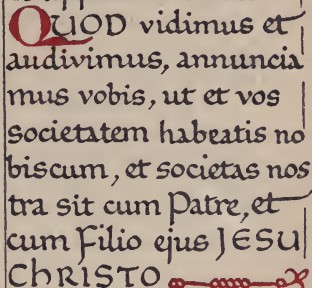 QUOD vidimus et
audivimus, annuncia
mus vobis, ut et vos
societatem habeatis no
biscum, et societas nos
tra sit cum Patre, et
cum Filio ejus JESU
ChRISTO